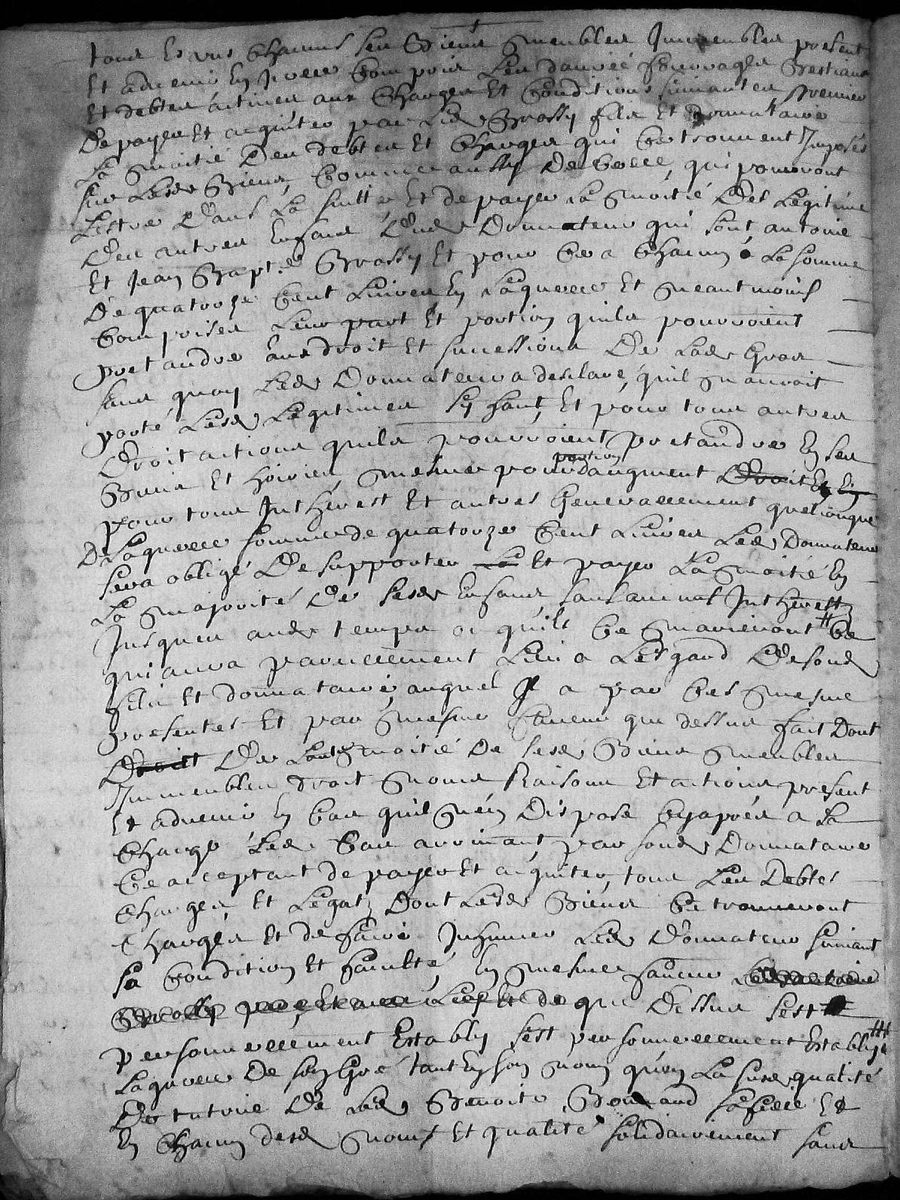 tous et uns chacuns ses biens meubles Immeubles present
Et advenir En Iceux Compris Les danrée fourrages Bestiaux
Et debtes actives aux charges Et Conditions suivantes Premier
De payer Et acquiter par Led Brossy fils Et donnataire
La moitié Des debtes Et charges qui Se trouvent Imposés
sur Lesd Biens, Comme aussy De Celle, qui pourront
Lestre Dans La suitte Et de payer La moitié Des Legitime
Des autres Enfans Dud Donnateur qui sont antoine
Et Jean Bapt.e Brossy Et pour Ce a chacun La somme
De quatorze Cent Livres En Laquelle Et Neantmoins
Comprises Leur part Et portion quils pourroient
pretandre aux droit Et successions De Lad
sans quoy Led Donnateur a desclaré, quil Nauroit
porté Lesd Legitimes Sy haut, Et pour tous autres
Droit actions quils pourroient pretandre En ses
Biens Et hoirie, mesme pour portion daugment Droit Et En
pour tous Intherest Et autres Generallement quelconque
De Laquelle somme de quatorze Cent Livres Led Donnateur
sera obligé De supporter La Et payer La moitié En
La majorité De sesd Enfans sans aucuns Intherest
Jusques aud temps ou quils Se marieront Ce
qui aura pareillement Lieu a Lesgard De sond
fils Et donnataire auquel Il a par Ces mesme
presentes Et par mesme faveur que dessus fait Dont
Droit De Lautre moitié De sesd Biens meubles
Immeubles droit Noms Raisons Et actions present
Et advenir En Cas quil N'en Dispose Cy apres a La
charge Led Cas arrivant par sond Donnataire
Ce acceptant de payer Et acquiter tous Les Debtes
charges Et Legat, Dont Lesd Biens Se trouveront
chargés Et de faire Inhumer Led Donnateur suivant
sa Condition Et faculté, En mesme faveur
Brossy Et de que Dessus sest
personnellement Establys sest personnellement Establye
Laquelle De son Gré tant En son Nom qu'en La susd qualité
De tutrice De Lad Benoite sa fille Et
En chacun desd Noms Et qualité solidairement sans